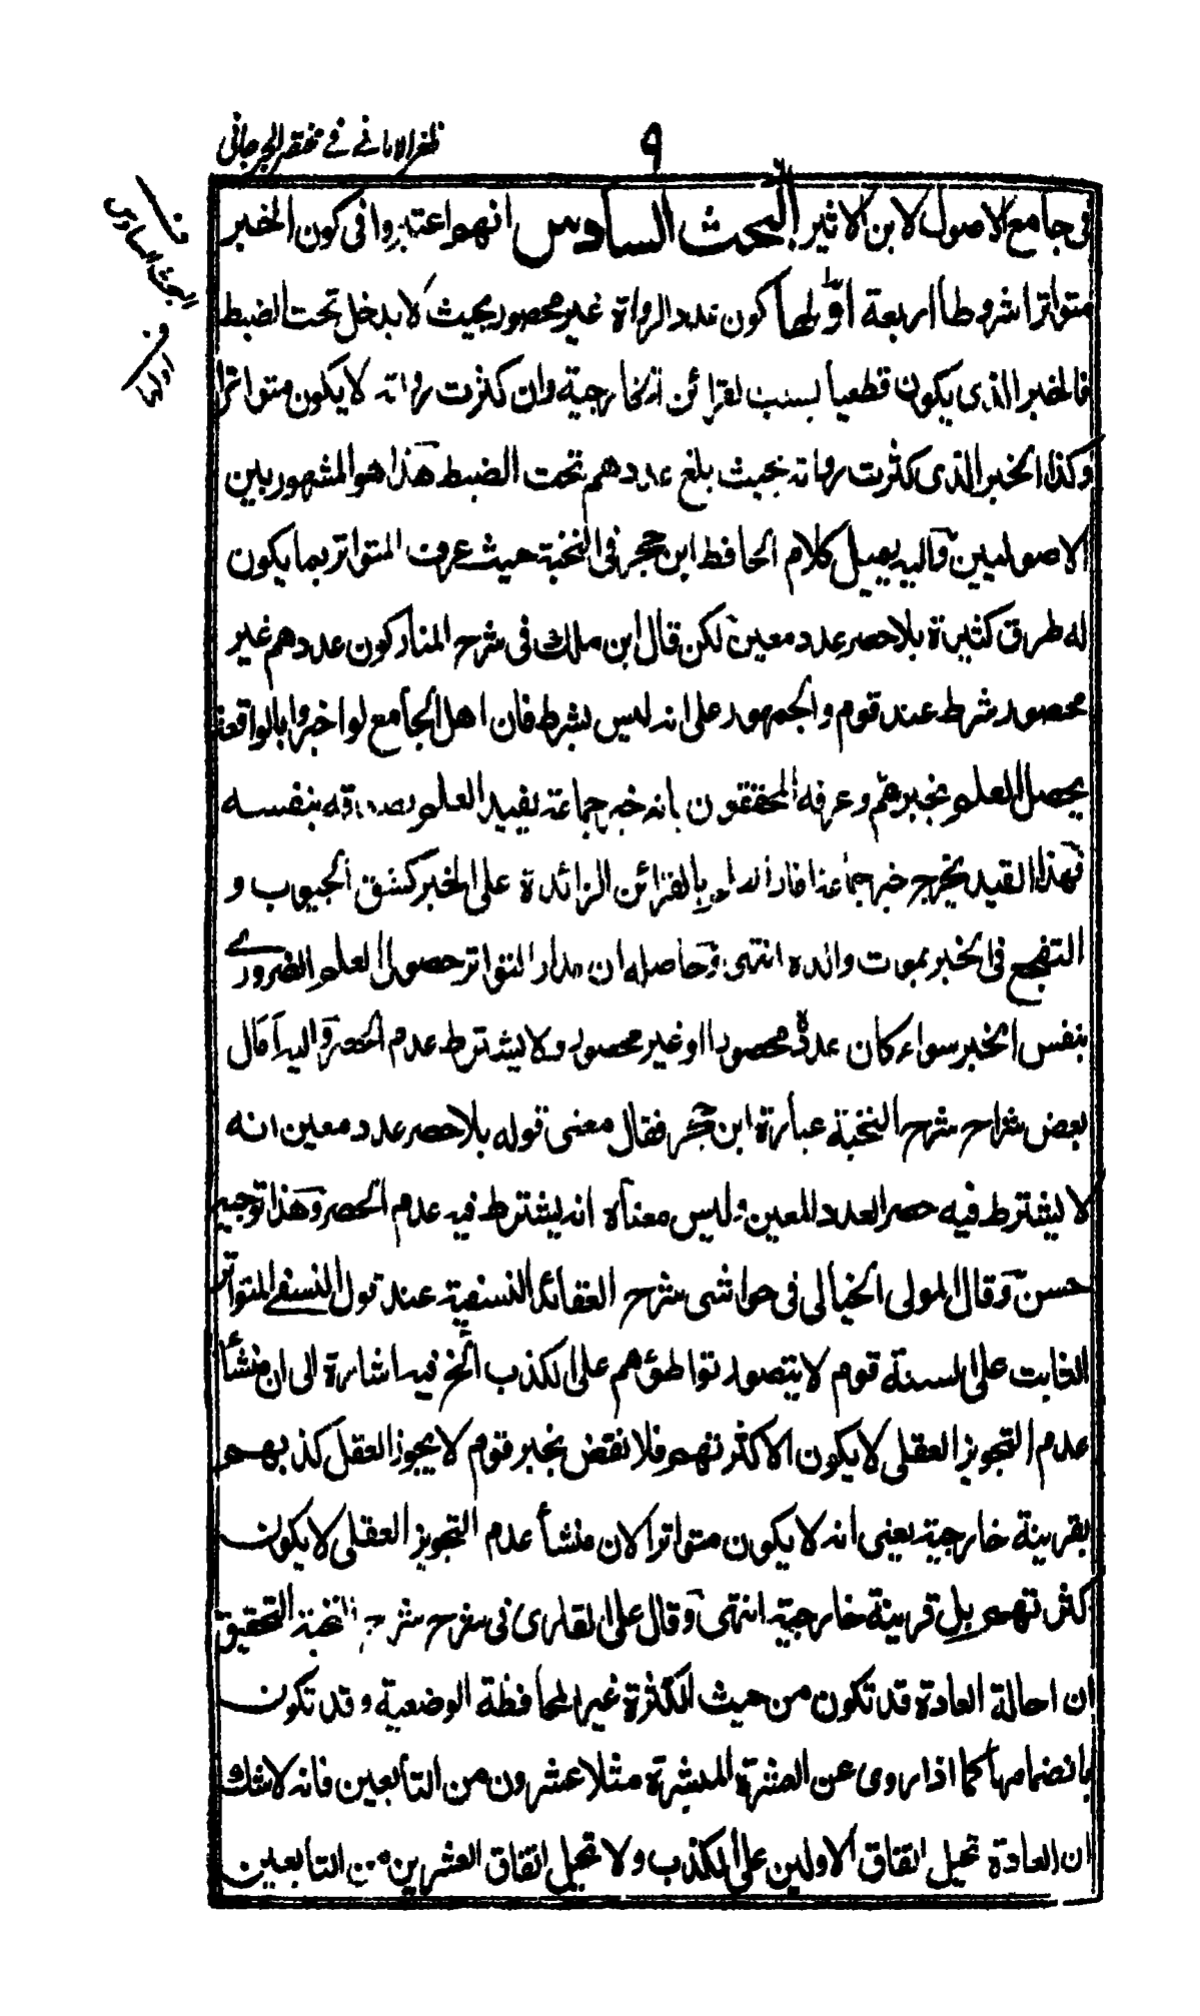 ظفر الامانے فے مختصر الجرجانی
٩
فی جامع الاصول لابن الاثیر البحث السادس انهم اعتبروا فی کون الخبر
متواترا شروطا اربعة اولها کون عدد الرواة غیر محصور بحیث لا یدخل تحت الضبط
فالخبر الذی یکون قطعیا بسبب القرائن الخارجیة وان کثرت رواته لا یکون متواترا
وکذا الخبر الذی کثرت رواته بحیث بلغ عددهم تحت الضبط هذا هو المشهور بین
الاصولیین والیه یمیل کلام الحافظ ابن حجر فی النخبة حیث عرف المتواتر بما یکون
له طرق کثیرة بلا حصر عدد معین لکن قال ابن ملک فی شرح المنار کون عددهم غیر
محصور شرط عند قوم والجمهور علی انه لیس بشرط فان اهل الجامع لو اخبروا بالواقعة
یحصل العلم بخبرهم وعرفه المحققون بانه خبر جماعة یفید العلم بصدقه بنفسه
فهذا القید یخرج خبر جماعة افاد العلم بالقرائن الزائدة علی الخبر کشق الجیوب و
التفجع فی الخبر بموت والده انتهی وحاصله ان مدار التواتر حصول العلم الضروری
بنفس الخبر سواء کان عدده محصورا او غیر محصور ولا یشترط عدم الحصر والیه مال
بعض شراح شرح النخبة عبارة ابن حجر فقال معنی قوله بلا حصر عدد معین انه
لا یشترط فیه حصر العدد المعین ولیس معناه انه یشترط فیه عدم الحصر وهذا توجیه
حسن وقال المولی الخیالی فی حواشی شرح العقائد النسفیة عند قول النسفے المتواتر
الثابت علی السنة قوم لا یتصور تواطؤهم علی الکذب الخ فیه اشارة الی ان منشأ
عدم التجویز العقلی لا یکون الا کثرتهم فلا نقض بخبر قوم لا یجوز العقل کذبهم
بقرینة خارجیة یعنی انه لا یکون متواترا لان منشأ عدم التجویز العقلی لا یکون
کثرتهم بل قرینة خارجیة انتهی وقال علی القاری فی شرح شرح النخبة التحقیق
ان احالة العادة قد تکون من حیث الکثرة غیر المحافظة الوضعیة وقد تکون
بانضمامها کما اذا روی عن العشرة المبشرة مثلا عشرون من التابعین فانه لا شک
ان العادة تحیل اتفاق الاولین علی الکذب ولا تحیل اتفاق العشرین من التابعین
البحث السادس
اولها